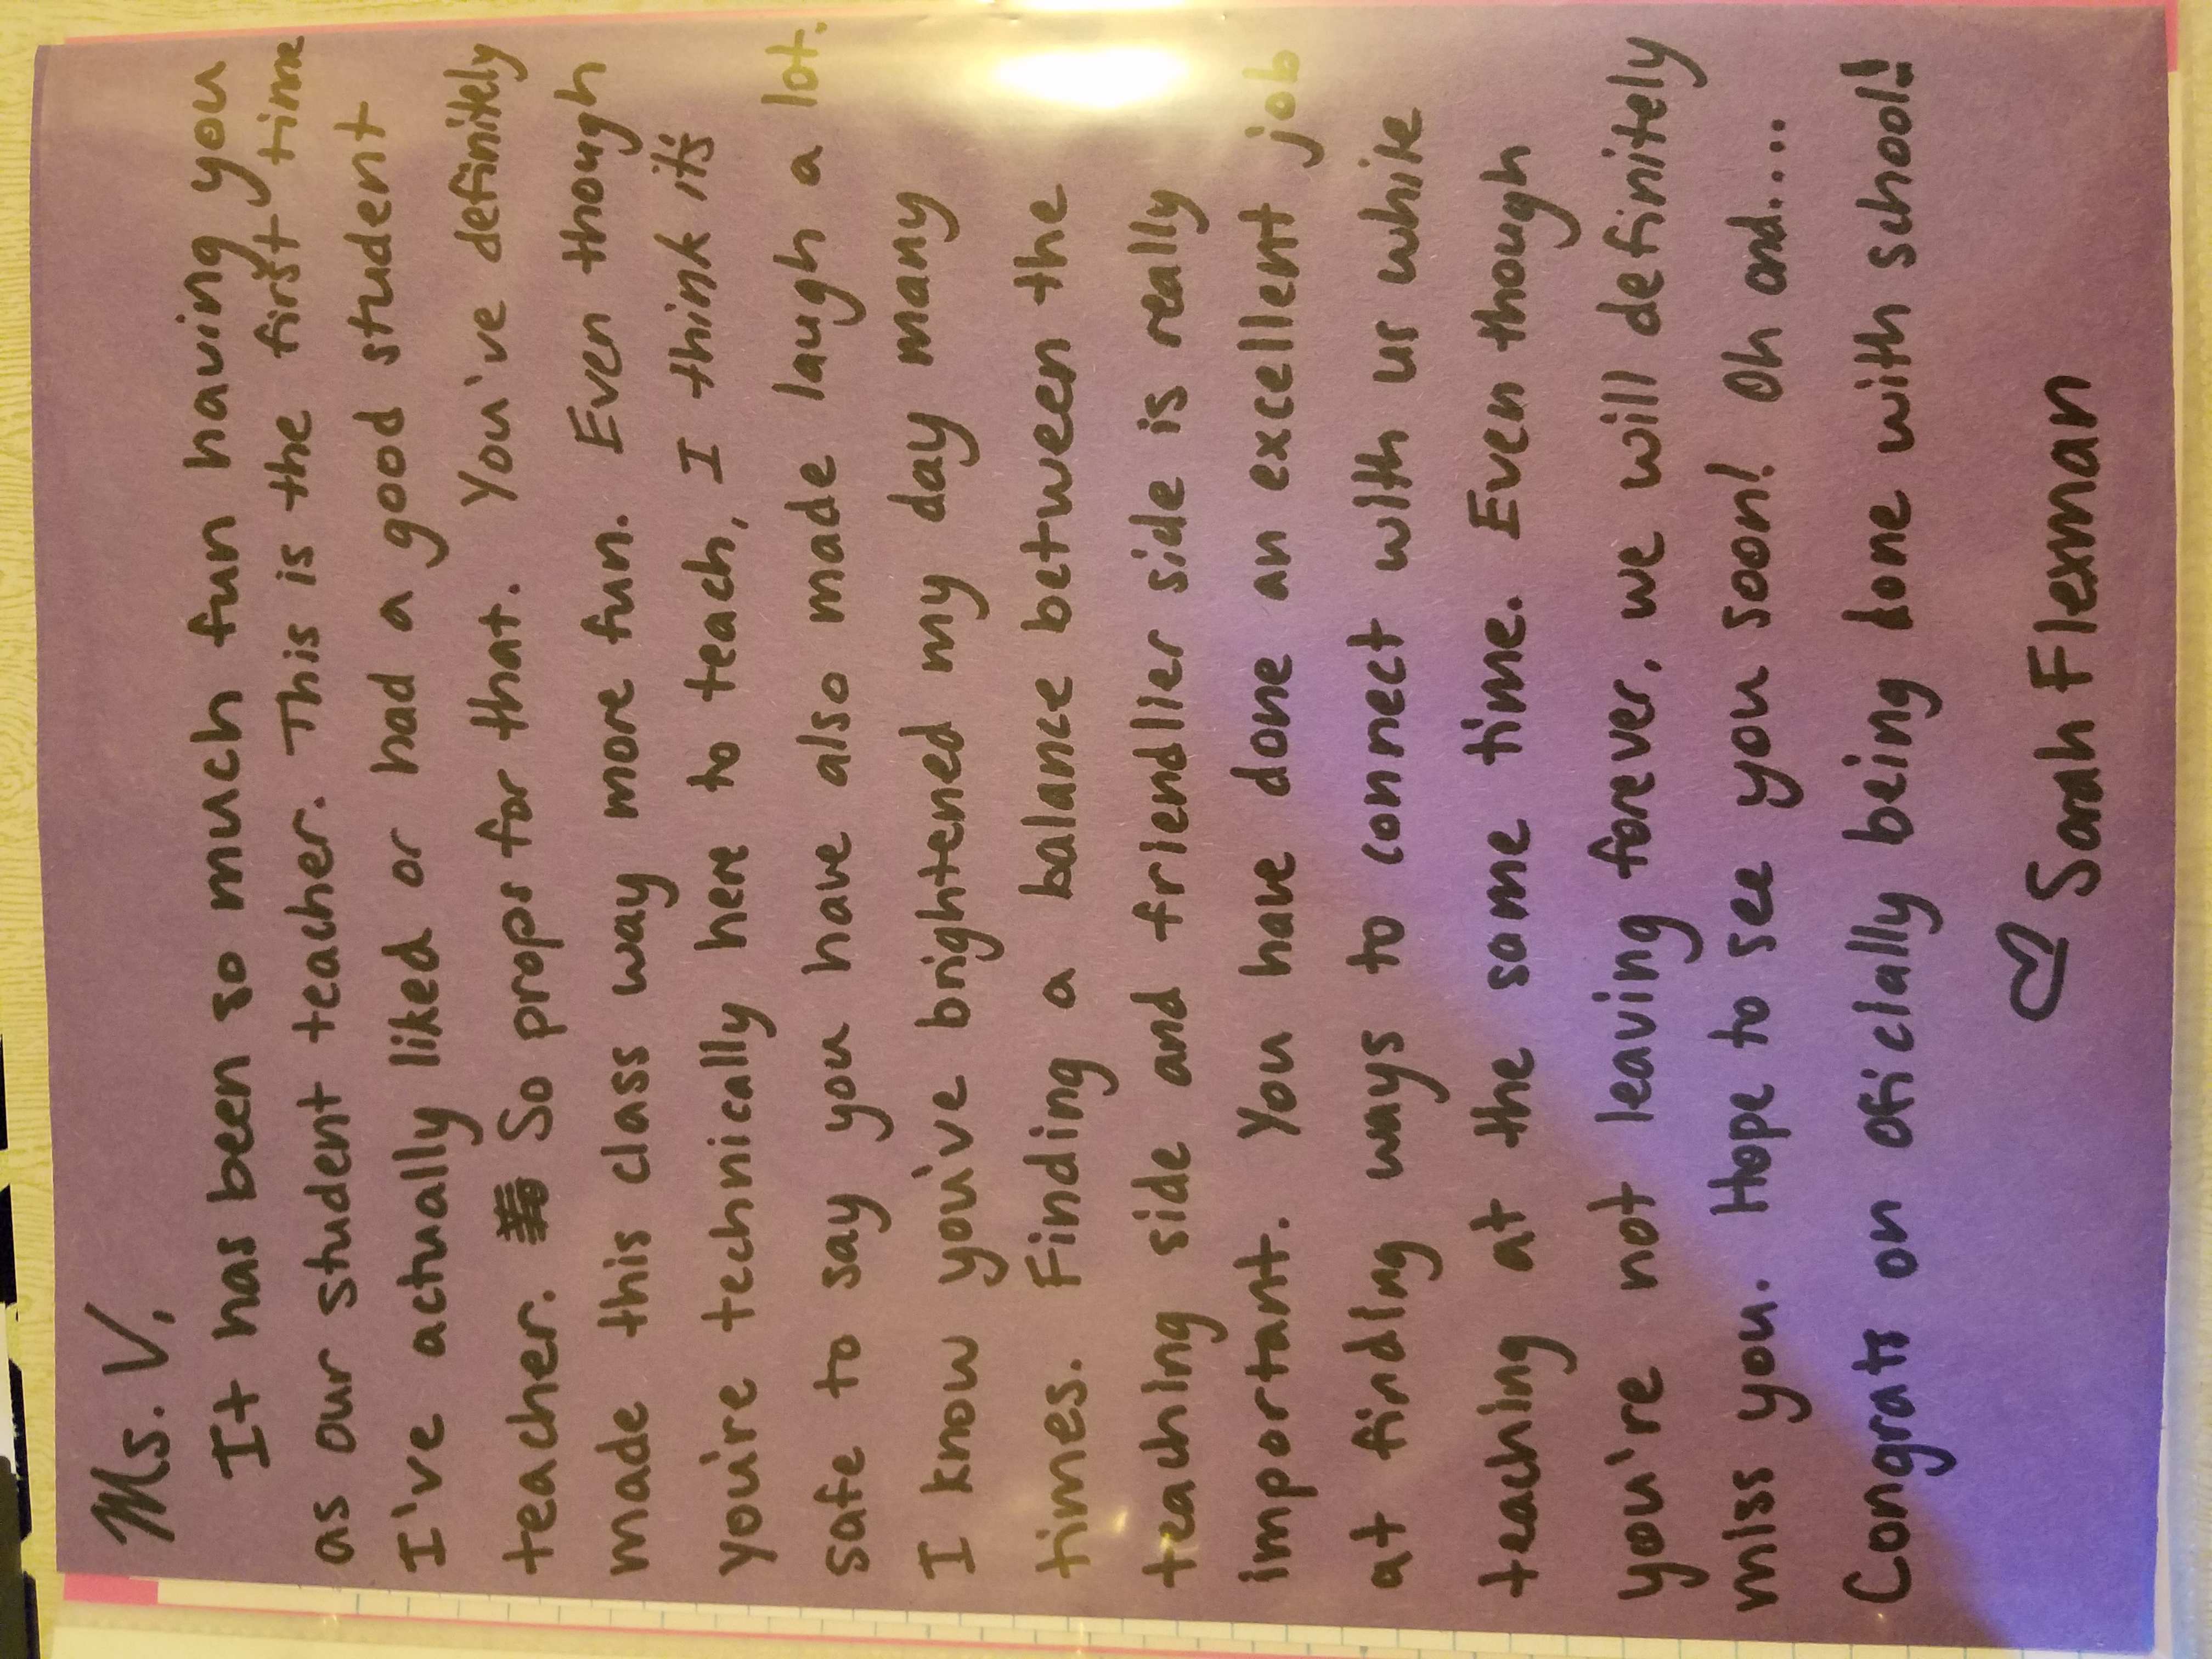 Ms. V,
It has been so much fun having you
as our student teacher. This is the first time
I've actually liked or had a good student
teacher. So props for that. You've definitely
made this class way more fun. Even though
you're technically here to teach, I think it's
safe to say you have also made laugh a lot.
I know you've brightened my day many
times. Finding a balance between the
teaching side and friendlier side is really
important. You have done an excellent job
at finding ways to connect with us while
teaching at the same time. Even though
you're not leaving forever, we will definitely
miss you. Hope to see you soon! Oh and....
Congrats on oficially being done with school!!
♡ Sarah Flexman